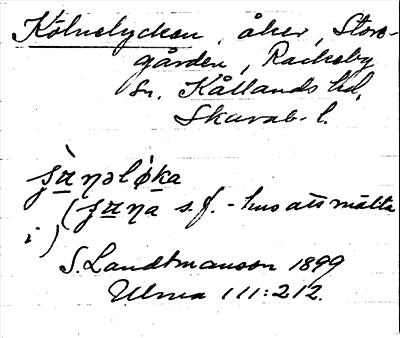 Kölnelyckan, åker, Store-
gården, Rackeby
sn. Kållands hd,
Skarab. l.
(ʃɑ̀ŋa s.f. - hus att mälta
i)
S. Landtmanson 1899
Ulma 111:212.